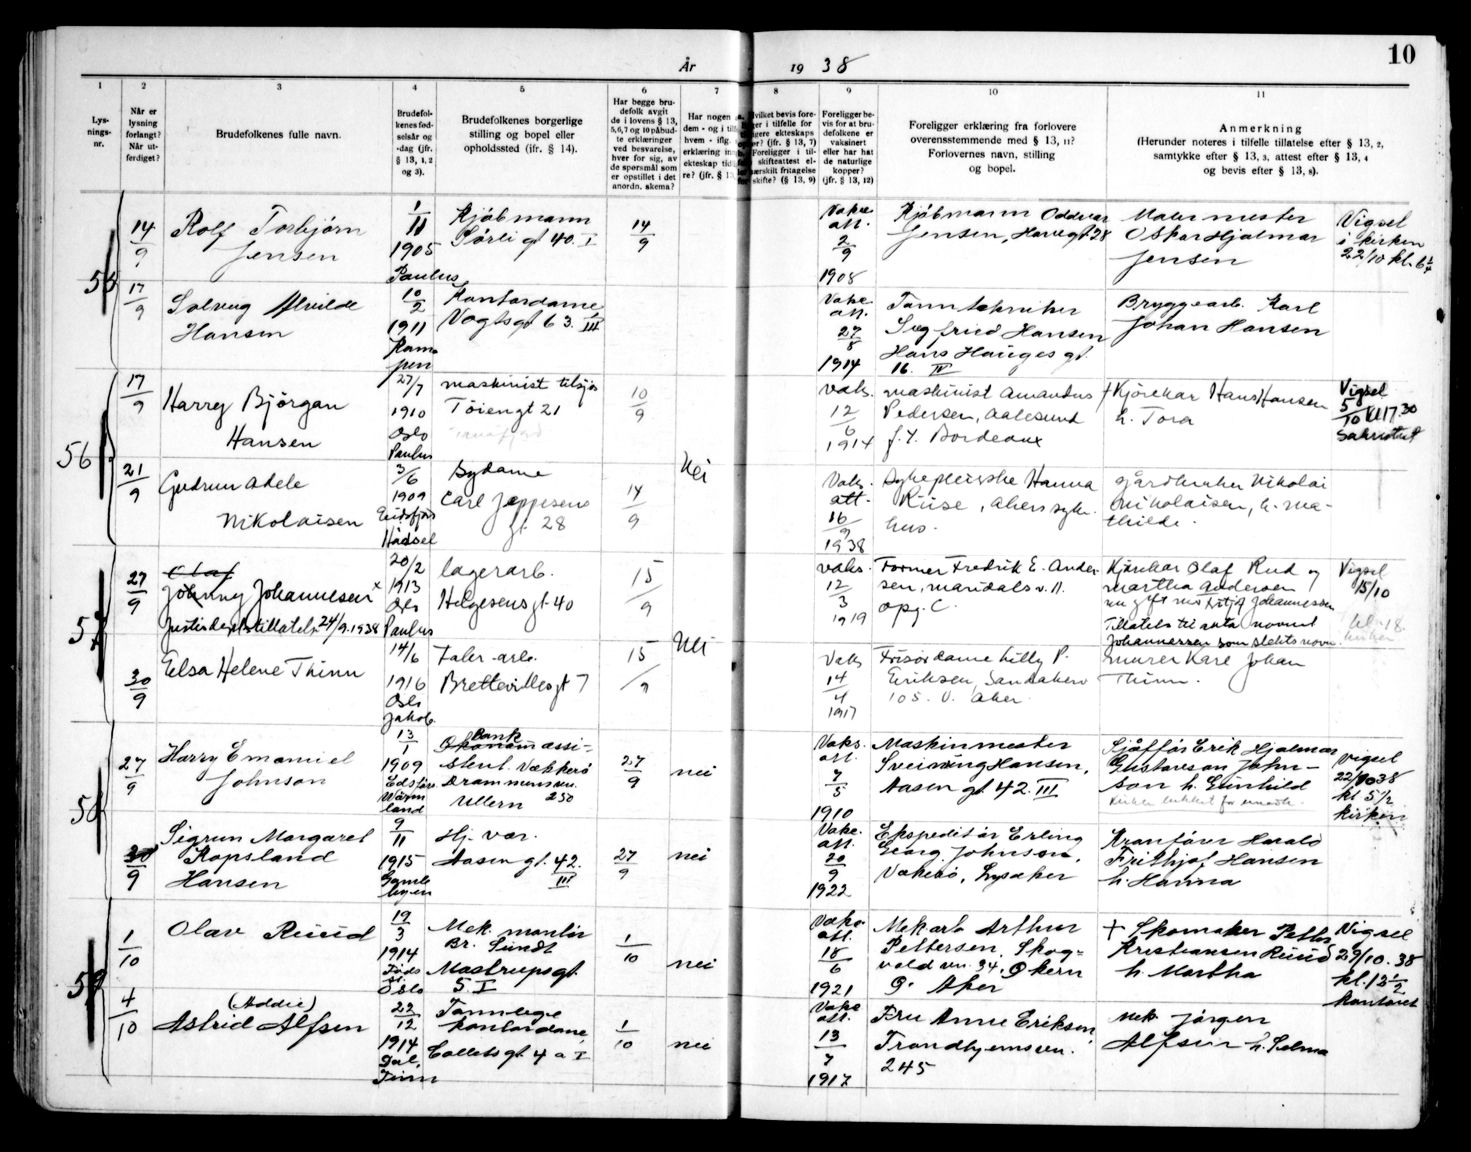 10
År 19 38
1 2 3 4 5 6 7 8 9 10 11
Lys-
nings-
nr.
Når er
lysning
forlangt?
Når ut-
ferdiget?
Brudefolkenes fulle navn.
Brudefol-
kenes fød-
selsår og
-dag (jfr.
§ 13, 1, 2
og 3).
Brudefolkenes borgerlige
stilling og bopel eller
opholdssted (jfr. § 14).
Har begge bru-
defolk avgitt
de i lovens § 13,
5, 6, 7 og 10 påbud-
te erklæringer
ved besvarelse,
hver for sig, av
de spørsmål som
er opstillet i det
anordn. skema?
Har nogen
dem - og i
hvem - iflg.
erklæring
ekteskap
re? (jfr. §
Foreligger be-
vis for at bru-
defolkene er
vaksinert
eller har hat
de naturlige
kopper?
(jfr. § 13, 12)
Foreligger erklæring fra forlovere
overensstemmende med § 13, 11?
Forlovernes navn, stilling
og bopel.
Anmerkning
(Herunder noteres i tilfelle tillatelse efter § 13, 2,
samtykke efter § 13, 3, attest efter § 13, 4
og bevis efter § 13, 8).
55
14/9
Rolf Torbjørn
Jensen
1/11
1905
Paulus
Kjøbmann
Sørli gt 40. I
14/9
Vaks.
att.
2/9
1908
Kjøbmann Oddvar
Jensen, Havegt 28
Malermester
Oskar Hjalmar
Jensen
Vigsel
i kirken
22/10 kl. 6 1/4
17/9
Solveig Alvilde
Hansen
10/2
1911
Kam-
pen
Kontordame
Vogtsgt 63. III
Vaks.
att.
27/8
1914
Tanntekniker
Sigfried Hansen
Hans Hauges gt.
16. IV
Bryggearb. Karl
Johan Hansen
56
17/9
Harry Bjørgan
Hansen
27/7
1910
Oslo
Paulus
maskinist tilsjøs
Tøiengt 21
10/9
vaks.
12/6
1914
maskinist Amandus
Pedersen, Aalesund
f. t. Bordeaux
+ Kjørekar Hans Hansen
h. Tora
Vigsel
5/10 kl 17 30
Sakristiet
21/9
Gudrun Adele
Nikolaisen
3/6
1909
Eidsfjord
Hadsel
Sydame
Carl Jeppesens
gt. 28
14/9
Nei
Vaks.
att.
16/9
1938
Sykepleierske Hanna
Riise, Akers syke-
hus.
gårdbruker Nikolai
Nikolaisen, h. Ma-
thilde.
57
27/9
Olaf
Johnny Johannesen x
Justisdeptstillatels. 24/9.1938
20/2
1913
Oslo
Paulus
lagerarb.
Helgesens gt. 40
15/9
vaks.
12/3
1919
Former Fredrik E. Ander-
sen, Maridals v. 11.
opg. C.
Kjørekar Olaf Rud og
Martha Andersen
nu gift med Johannessen
Tillatels til anta navnet
Johannessen som slektsnavn.
Vigsel
15/10
kl. 18.
kirken
30/9
Elsa Helene Thinn
14/6
1916
Oslo
Jakob.
Brettevilles gt 7
15/9
Nei
Vaks
14/4
1917
Frisørdame Lilly P.
Eriksen, Sandakerv
105. V. Aker.
murer Kare Johan
Thinn.
58
27/9
Harry Emanuel
Johnson
13/1
1909
Värm-
land
Bank
Økonom assi-
stent. Vækkerø
Drammensvn.
Ullern 250
27/9
nei
Vaks.
att.
7/5
1910
Maskinmester
Sveining Hansen,
Aasen gt 42. III
Sjåffør Erik Hjalmar
Gustavson John-
son h. Gunhild
vigsel
22/10 38
kl 5 1/2
kirken
30/9
Sigrun Margaret
Kopsland
Hansen
9/11
1915
Gamle
byen
Hj. vær.
Aasen gt. 42.
III
27/9
nei
Vaks.
att.
20/9
1922
Ekspeditør Erling
Georg Johnson,
Vækerø, Lysaker
Kranfører Harald
Frithjof Hansen
h. Hanna
59
1/10
Olav Ruud
19/3
1914
Føds
st.
Oslo
Mek. montør
Br. Sundt
Mostrupsgt.
5. I
1/10
nei
Vaks.
att.
18/6
1921
Mek arb Arthur
Pettersen, Skog-
vold vn. 34. Økern
Ø. Aker
+ Skomaker Petter
Kristiansen Ruud
h. Martha
Vigsel
29/10. 38
kl. 12 1/2
kontoret
4/10
(Addie)
Astrid Alfsen
22/12
1914
Dal,
Tinn
Tannlege
kontordame
Colletsgt. 4 a I
1/10
nei
Vaks
att.
13/7
1917
Fru Anne Eriksen
Trondhjemsvn.
245
Mek Jørgen
Alfsen h. Selma